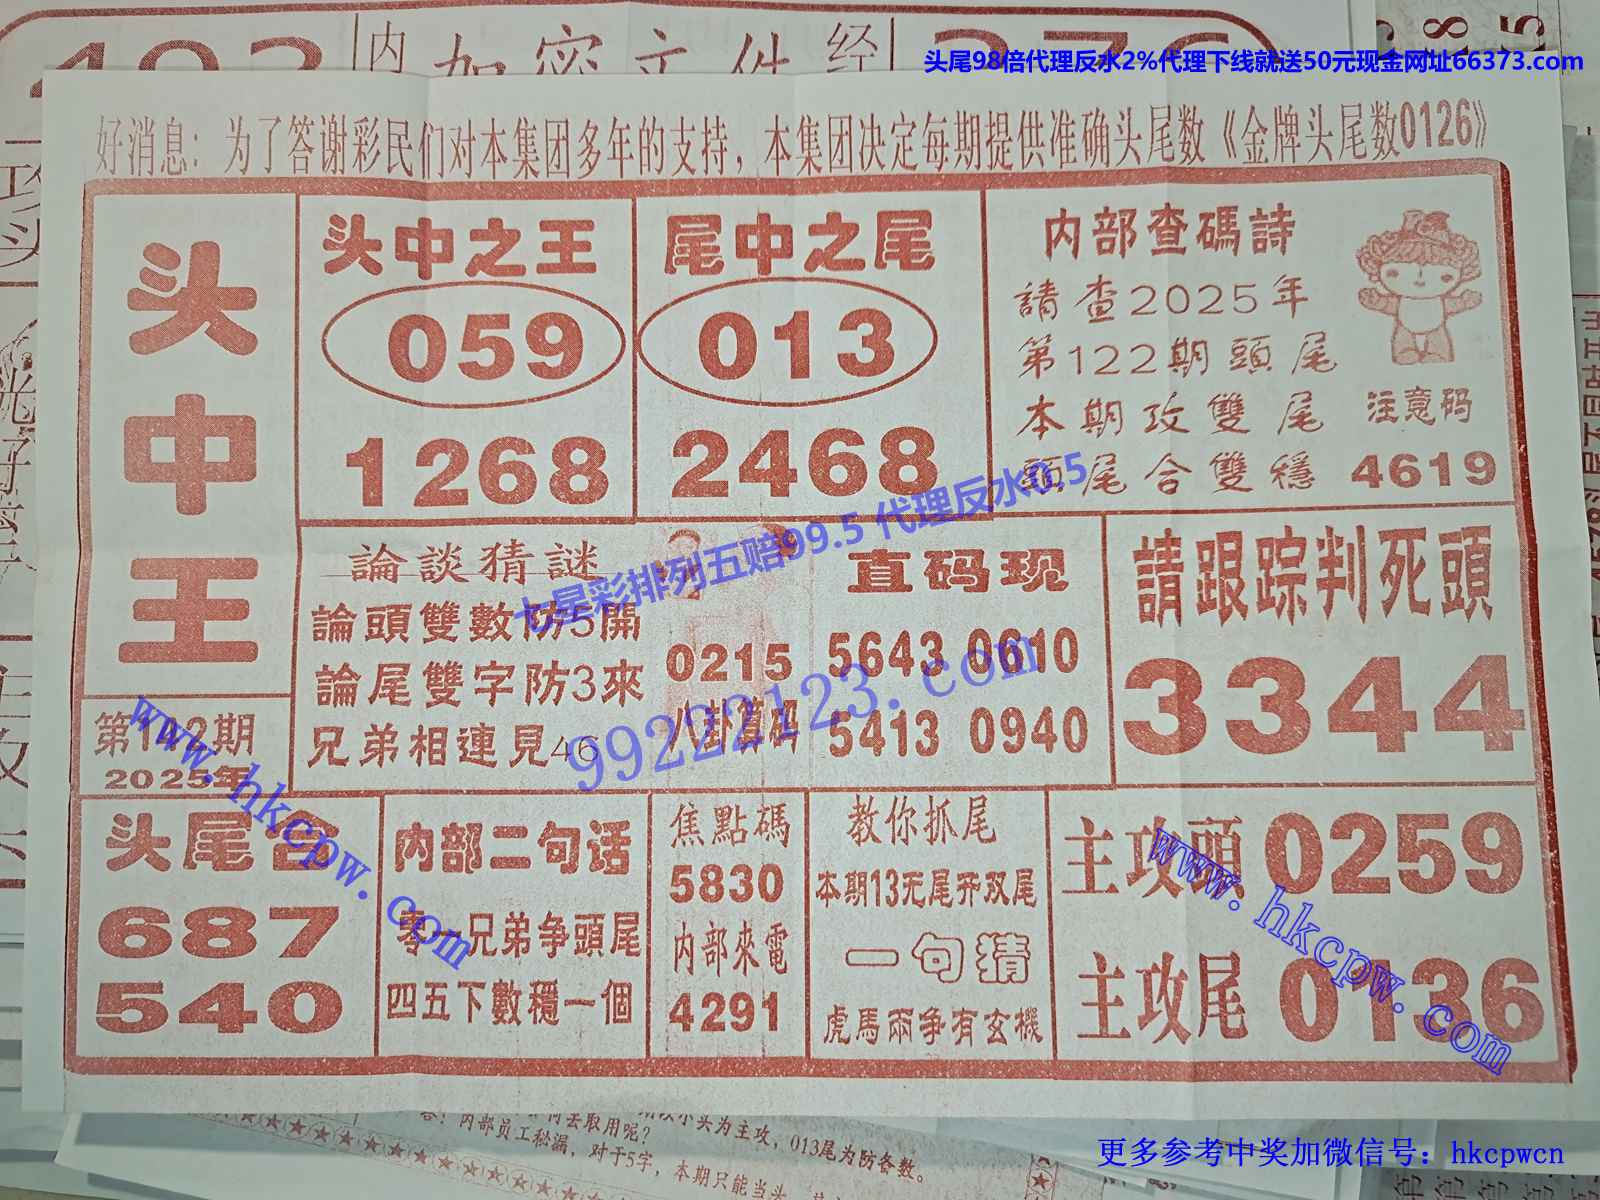 内 加密文件 经
头尾98倍代理反水2%代理下线就送50元现金网址66373.com
好消息：为了答谢彩民们对本集团多年的支持，本集团决定每期提供准确头尾数《金牌头尾数0126》
头中王
第122期
2025年
头中之王
059
1268
尾中之尾
013
2468
内部查碼詩
請查2025年
第122期頭尾
本期攻雙尾
頭尾合雙穩
注意码
4619
論談猜謎
論頭雙數防5開
論尾雙字防3來
兄弟相連見46
0215
八卦算码
直码现
5643 0610
5413 0940
請跟踪判死頭
3344
七星彩排列五赔99.5 代理反水0.5
99222123.com
www.hkcpw.com
头尾合
687
540
内部二句话
零一兄弟争頭尾
四五下數穩一個
焦點碼
5830
内部來電
4291
教你抓尾
本期13无尾开双尾
一句猜
虎馬兩争有玄機
主攻頭0259
主攻尾0136
www.hkcpw.com
内部员工秘漏，对于5字，本期只能当头
头为主攻，013尾为防备数。
更多参考中奖加微信号：hkcpwcn